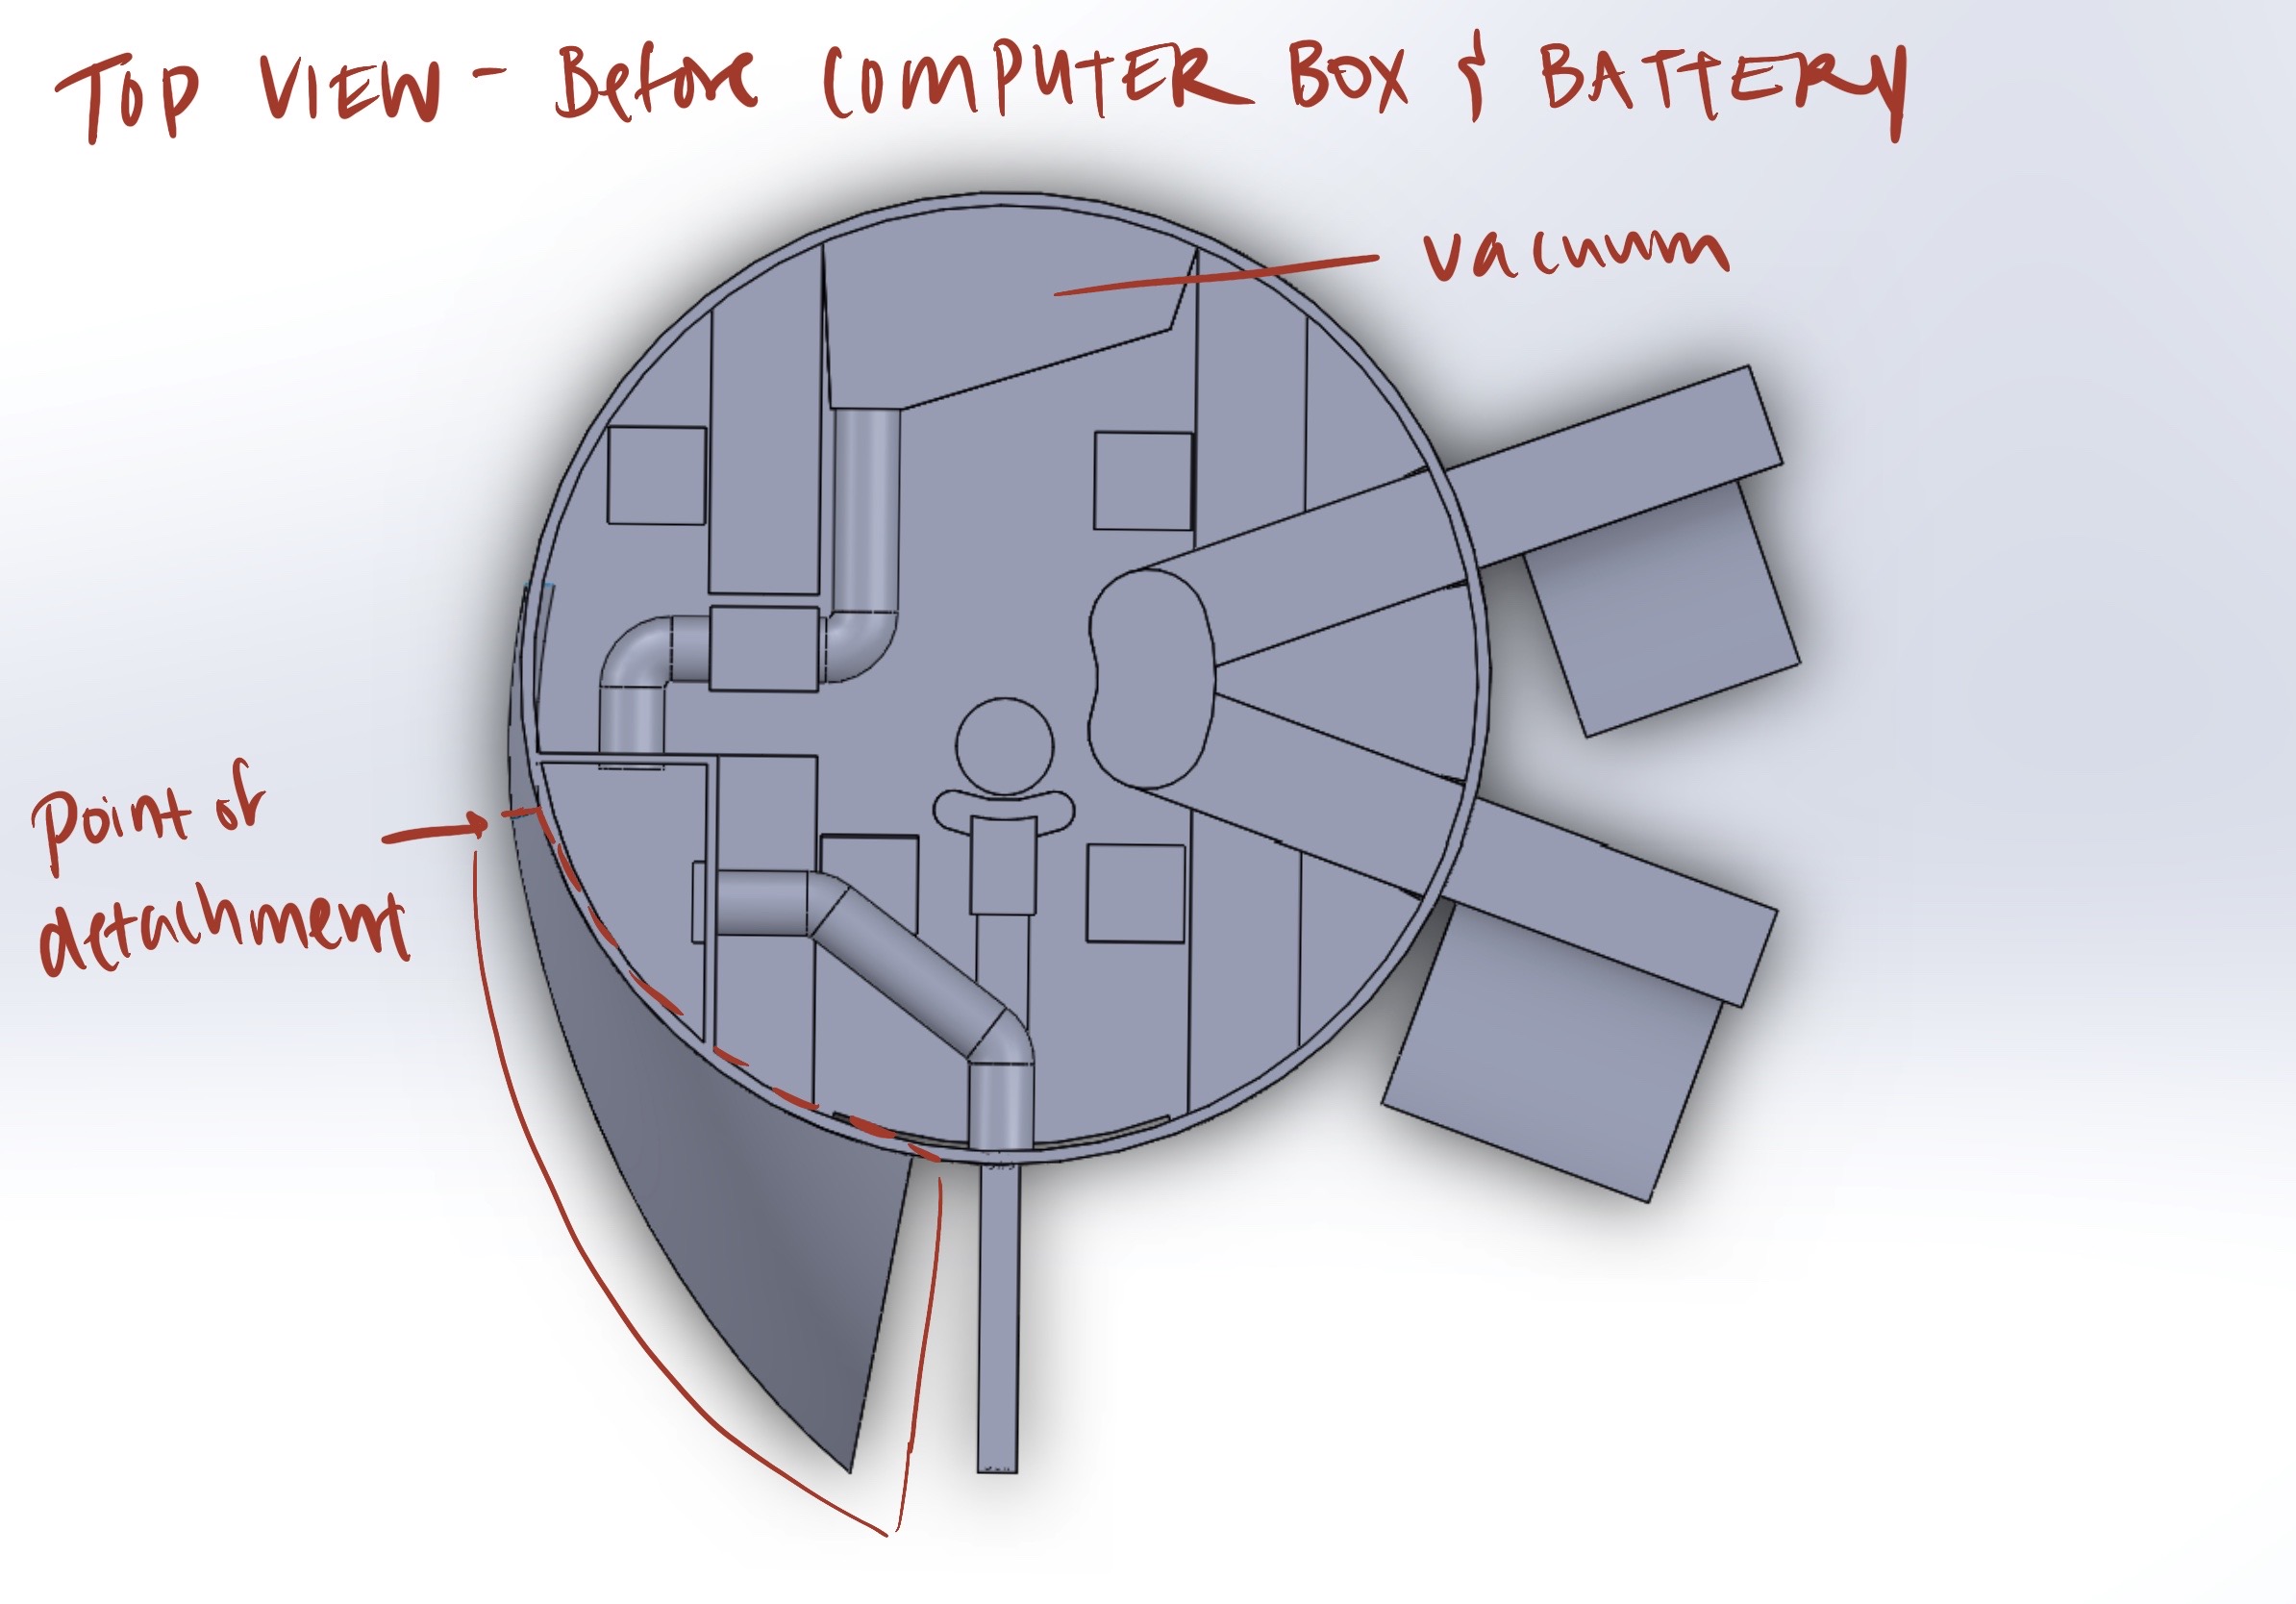 TOP VIEW - Before COMPUTER BOX & BATTERY
vacuum
Point of
detachment